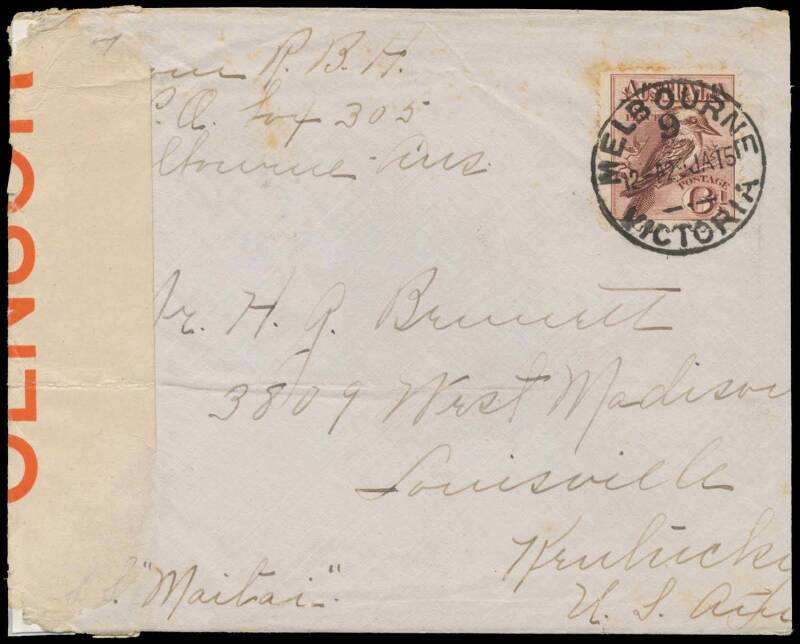 R. B. H.
Box 305
lbourne Aus.
AUSTRALIA
POSTAGE
6D
MELBOURNE
9
12-A 2-JA 15
VICTORIA
CENSOR
Mr. H. J. Bennett
3809 West Madison
Louisville
Kentucky
U. S. A.
S.S. "Maitai".